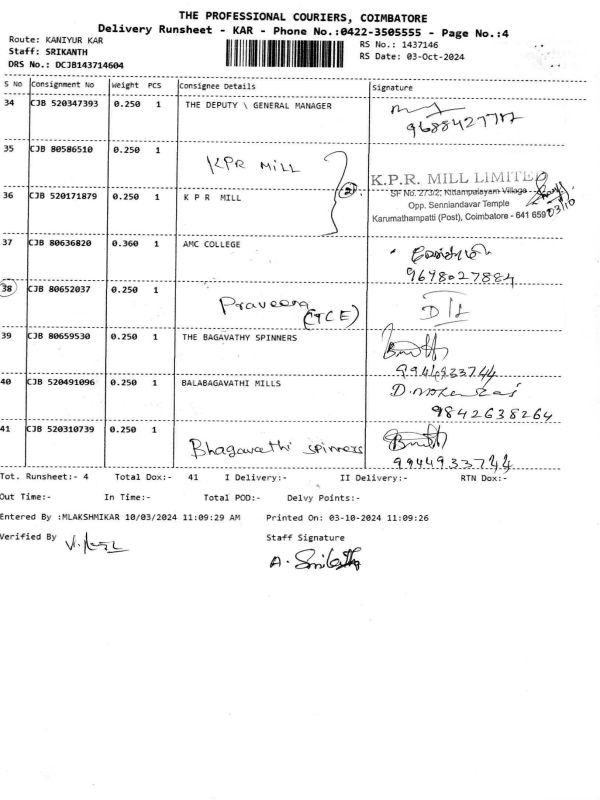 THE PROFESSIONAL COURIERS, COIMBATORE
Delivery Runsheet - KAR - Phone No.:0422-3505555 - Page No.:4
Route: KANIYUR KAR
Staff: SRIKANTH
DRS No.: DCJB143714604
RS No.: 1437146
RS Date: 03-Oct-2024
S No Consignment No Weight PCS Consignee Details Signature
34 CJB 520347393 0.250 1 THE DEPUTY \ GENERAL MANAGER
35 CJB 80586510 0.250 1 KPR MILL
2
K.P.R. MILL LIMITED
SF No. 273/2, Kittampalayam Village
36 CJB 520171879 0.250 1 K P R MILL
Opp. Senniandavar Temple
Karumathampatti (Post), Coimbatore - 641 659
03/10
37 CJB 80636820 0.360 1 AMC COLLEGE
9678027884
38 CJB 80652037 0.250 1 Praveena
(TCE)
D/L
39 CJB 80659530 0.250 1 THE BAGAVATHY SPINNERS
9944933744
40 CJB 520491096 0.250 1 BALABAGAVATHI MILLS
9842638264
41 CJB 520310739 0.250 1 Bhagavathi spinners
9944933744
Tot. Runsheet:- 4 Total Dox:- 41 I Delivery:- II Delivery:- RTN Dox:-
Out Time:- In Time:- Total POD:- Delvy Points:-
Entered By :MLAKSHMIKAR 10/03/2024 11:09:29 AM Printed On: 03-10-2024 11:09:26
Verified By Staff Signature